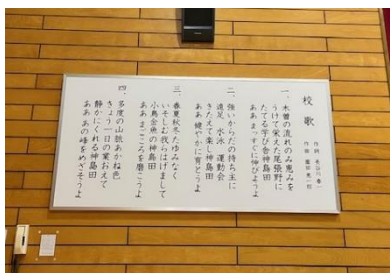 校歌
作詞 長谷川春一
作曲 冨田光一郎
一、木曽の流れのみ恵みを
うけて栄えた尾張野に
たてる学び舎神島田
ああまっすぐに伸びようよ
二、強いからだの持ち主に
遠足 水泳 運動会
きたえて楽し神島田
ああ健やかに育とうよ
三、春夏秋冬たゆみなく
いそしむ我らはげまして
小鳥金魚の神島田
ああまごころを磨こうよ
四、多度の山脈あかね色
きょう一日の業おえて
静かにくれる神島田
あああの峰をめざそうよ